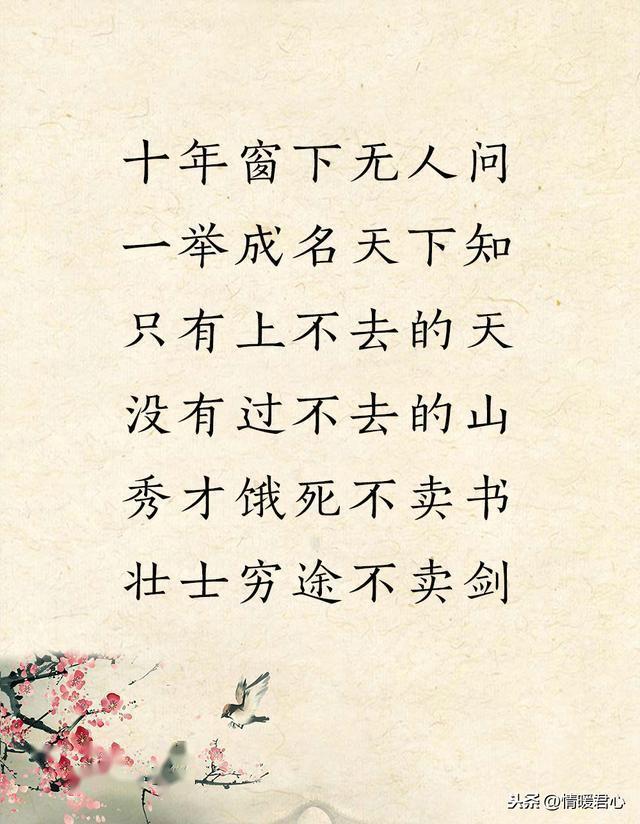 十年窗下无人问
一举成名天下知
只有上不去的天
没有过不去的山
秀才饿死不卖书
壮士穷途不卖剑
头条@情暖君心